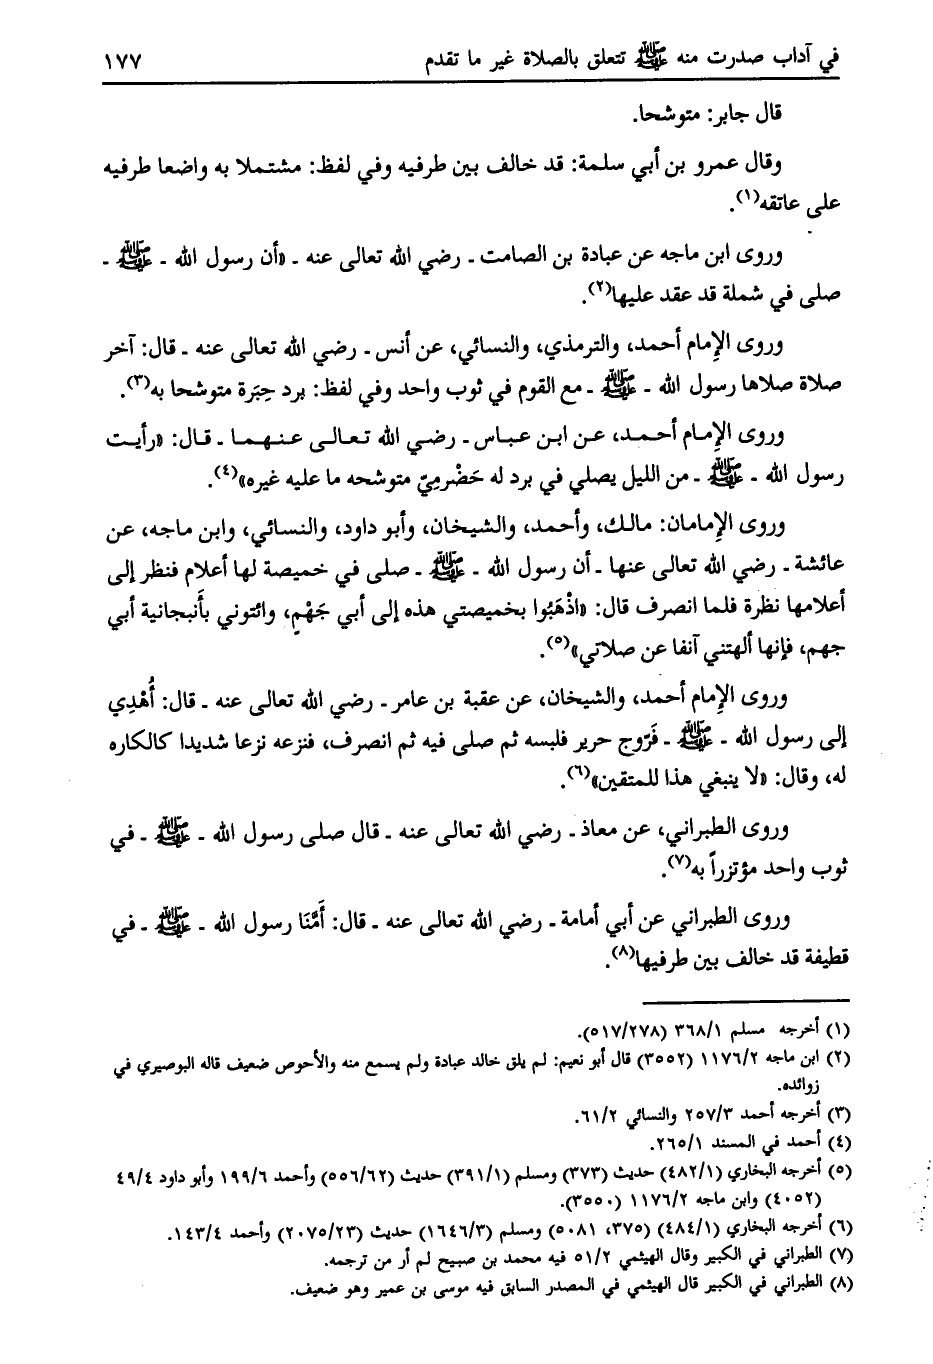 في آداب صدرت منه ﷺ تتعلق بالصلاة غير ما تقدم ١٧٧
قال جابر: متوشحا.
وقال عمرو بن أبي سلمة: قد خالف بين طرفيه وفي لفظ: مشتملا به واضعا طرفيه
على عاتقه(١).
وروى ابن ماجه عن عبادة بن الصامت ـ رضي الله تعالى عنه ـ «أن رسول الله ـ ﷺ ـ
صلى في شملة قد عقد عليها(٢).
وروى الإمام أحمد، والترمذي، والنسائي، عن أنس ـ رضي الله تعالى عنه ـ قال: آخر
صلاة صلاها رسول الله ـ ﷺ ـ مع القوم في ثوب واحد وفي لفظ: برد حِبَرة متوشحا به(٣).
وروى الإمام أحمد، عن ابن عباس ـ رضي الله تعالى عنهما ـ قال: «رأيت
رسول الله ـ ﷺ ـ من الليل يصلي في برد له حَضْرمِيّ متوشحه ما عليه غيره»(٤).
وروى الإمامان: مالك، وأحمد، والشيخان، وأبو داود، والنسائي، وابن ماجه، عن
عائشة ـ رضي الله تعالى عنها ـ أن رسول الله ـ ﷺ ـ صلى في خميصة لها أعلام فنظر إلى
أعلامها نظرة فلما انصرف قال: «اذْهَبُوا بخميصتي هذه إلى أبي جَهْمٍ، وائتوني بأَنبجانية أبي
جهم، فإنها ألهتني آنفا عن صلاتي»(٥).
وروى الإمام أحمد، والشيخان، عن عقبة بن عامر ـ رضي الله تعالى عنه ـ قال: أُهْدِي
إلى رسول الله ـ ﷺ ـ فَرّوج حرير فلبسه ثم صلى فيه ثم انصرف، فنزعه نزعا شديدا كالكاره
له، وقال: «لا ينبغي هذا للمتقين»(٦).
وروى الطبراني، عن معاذ ـ رضي الله تعالى عنه ـ قال صلى رسول الله ـ ﷺ ـ في
ثوب واحد مؤتزراً به(٧).
وروى الطبراني عن أبي أمامة ـ رضي الله تعالى عنه ـ قال: أَمَّنَا رسول الله ـ ﷺ ـ في
قطيفة قد خالف بين طرفيها(٨).
(١) أخرجه مسلم ٣٦٨/١ (٥١٧/٢٧٨).
(٢) ابن ماجه ١١٧٦/٢ (٣٥٥٢) قال أبو نعيم: لم يلق خالد عبادة ولم يسمع منه والأحوص ضعيف قاله البوصيري في
زوائده.
(٣) أخرجه أحمد ٢٥٧/٣ والنسائي ٦١/٢.
(٤) أحمد في المسند ٢٦٥/١.
(٥) أخرجه البخاري (٤٨٢/١) حديث (٣٧٣) ومسلم (٣٩١/١) حديث (٥٥٦/٦٢) وأحمد ١٩٩/٦ وأبو داود ٤٩/٤
(٤٠٥٢) وابن ماجه ١١٧٦/٢ (٣٥٥٠).
(٦) أخرجه البخاري (٤٨٤/١) (٣٧٥، ٥٠٨١) ومسلم (١٦٤٦/٣) حديث (٢٠٧٥/٢٣) وأحمد ١٤٣/٤.
(٧) الطبراني في الكبير وقال الهيثمي ٥١/٢ فيه محمد بن صبيح لم أر من ترجمه.
(٨) الطبراني في الكبير قال الهيثمي في المصدر السابق فيه موسى بن عمير وهو ضعيف.